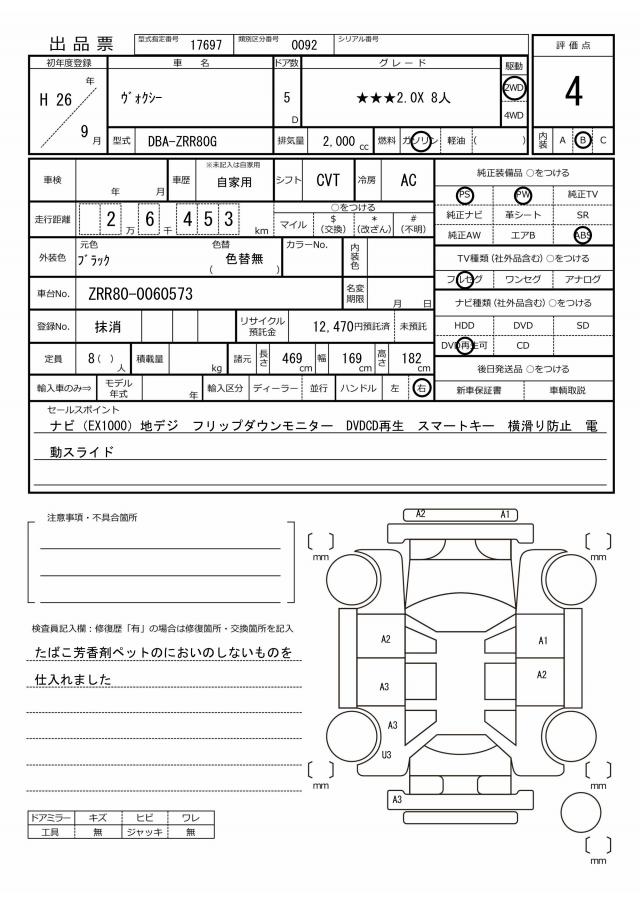 出品票 型式指定番号 17697 類別区分番号 0092 シリアル番号
評価点
初年度登録 車名 ドア数 グレード 駆動
H 26 年 9 月
ヴォクシー
5 D
★★★2.0X 8人
2WD
4WD
4
型式 DBA-ZRR80G 排気量 2,000 cc 燃料 ガソリン 軽油 ( )
内装 A B C
車検 年 月 車歴 ※未記入は自家用 自家用 シフト CVT 冷房 AC
純正装備品 ○をつける
PS PW 純正TV
純正ナビ 革シート SR
純正AW エアB ABS
走行距離 2 万 6 千 4 5 3 km
○をつける
マイル $ (交換) * (改ざん) # (不明)
外装色 元色 ブラック 色替 ( 色替無 ) カラーNo. 内装色
TV種類 (社外品含む) ○をつける
フルセグ ワンセグ アナログ
車台No. ZRR80-0060573 名変期限 月 日
ナビ種類 (社外品含む) ○をつける
HDD DVD SD
DVD再生可 CD
登録No. 抹消 リサイクル預託金 12,470円預託済 未預託
定員 8( ) 人 積載量 kg 諸元 長さ 469 cm 幅 169 cm 高さ 182 cm
後日発送品 ○をつける
新車保証書 車輌取説
輸入車のみ⇒ モデル年式 年 輸入区分 ディーラー 並行 ハンドル 左 右
セールスポイント
ナビ（EX1000）地デジ フリップダウンモニター DVDCD再生 スマートキー 横滑り防止 電
動スライド
注意事項・不具合箇所
検査員記入欄：修復歴「有」の場合は修復箇所・交換箇所を記入
たばこ芳香剤ペットのにおいのしないものを
仕入れました
ドアミラー キズ ヒビ ワレ
工具 無 ジャッキ 無
A2 A1
mm mm
A2 A1
A3 A2
A3
U3
mm mm
A3
mm